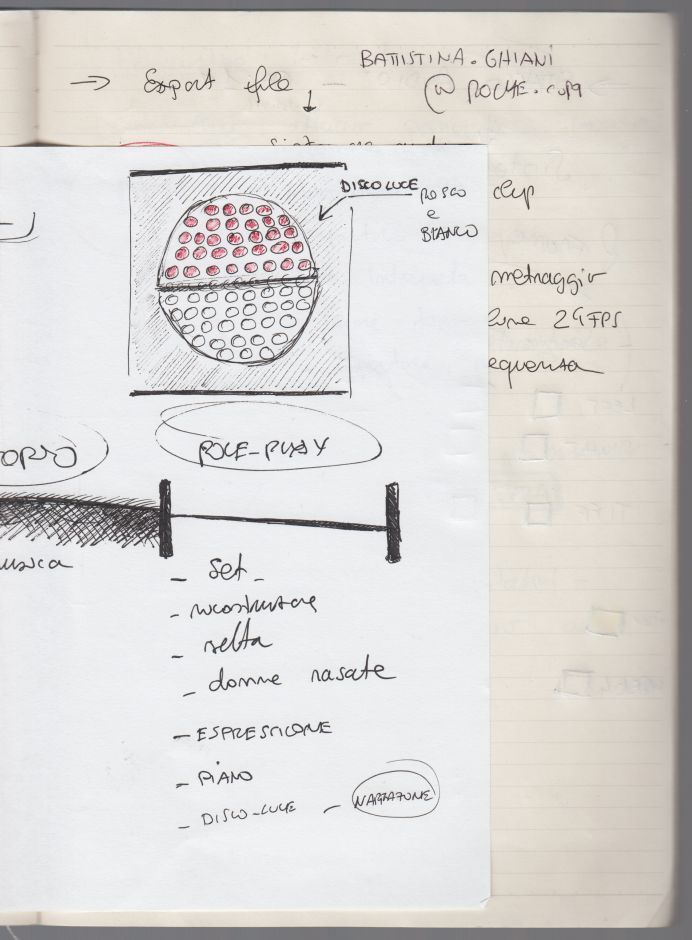 → Export file –
BATTISTINA.GHIANI
@ ROCHE.com
DISCO LUCE
ROSCO
e
BIANCO
clip
metraggio
24 FPS
equenza
OPPIO
ROLE-PLAY
usica
– Set –
– ricostruzione
– scelta
– donne rasate
– ESPRESSIONE
– PIANO
– DISCO-LUCE – NARRAZIONE